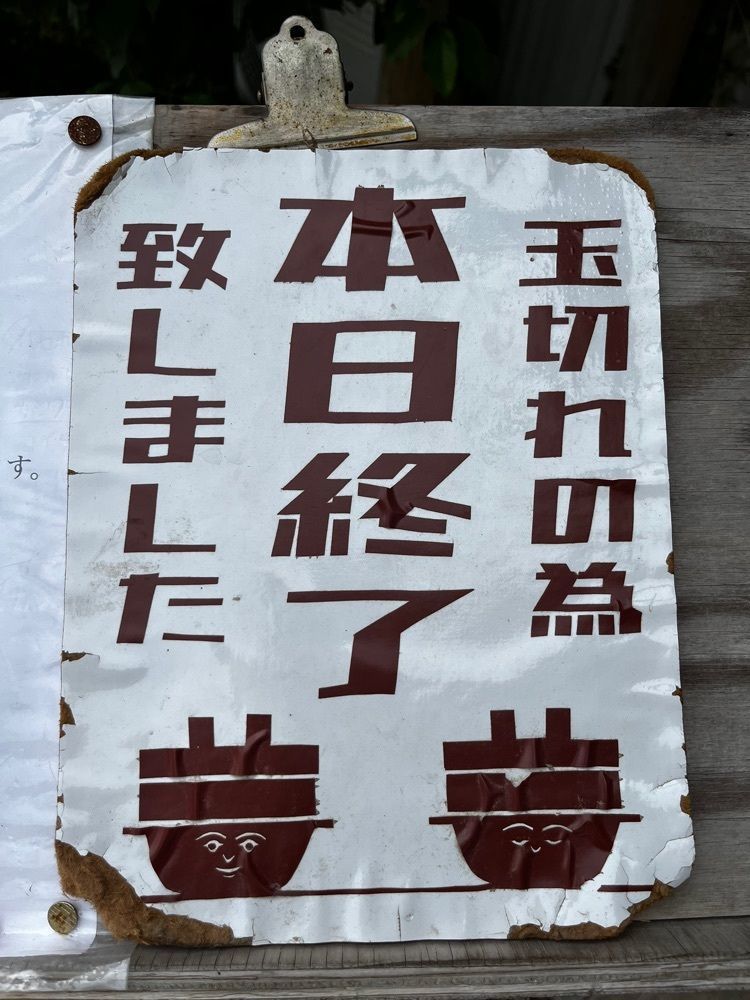 玉切れの為
本日終了
致しました
す。